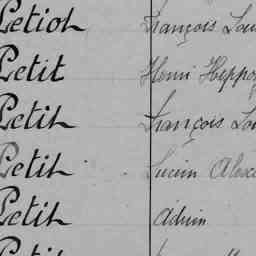 Petiot François Lou
Petit Henri Hippo
Petit François Lo
Petit Lucien Alex
Petit Adrien
Petit